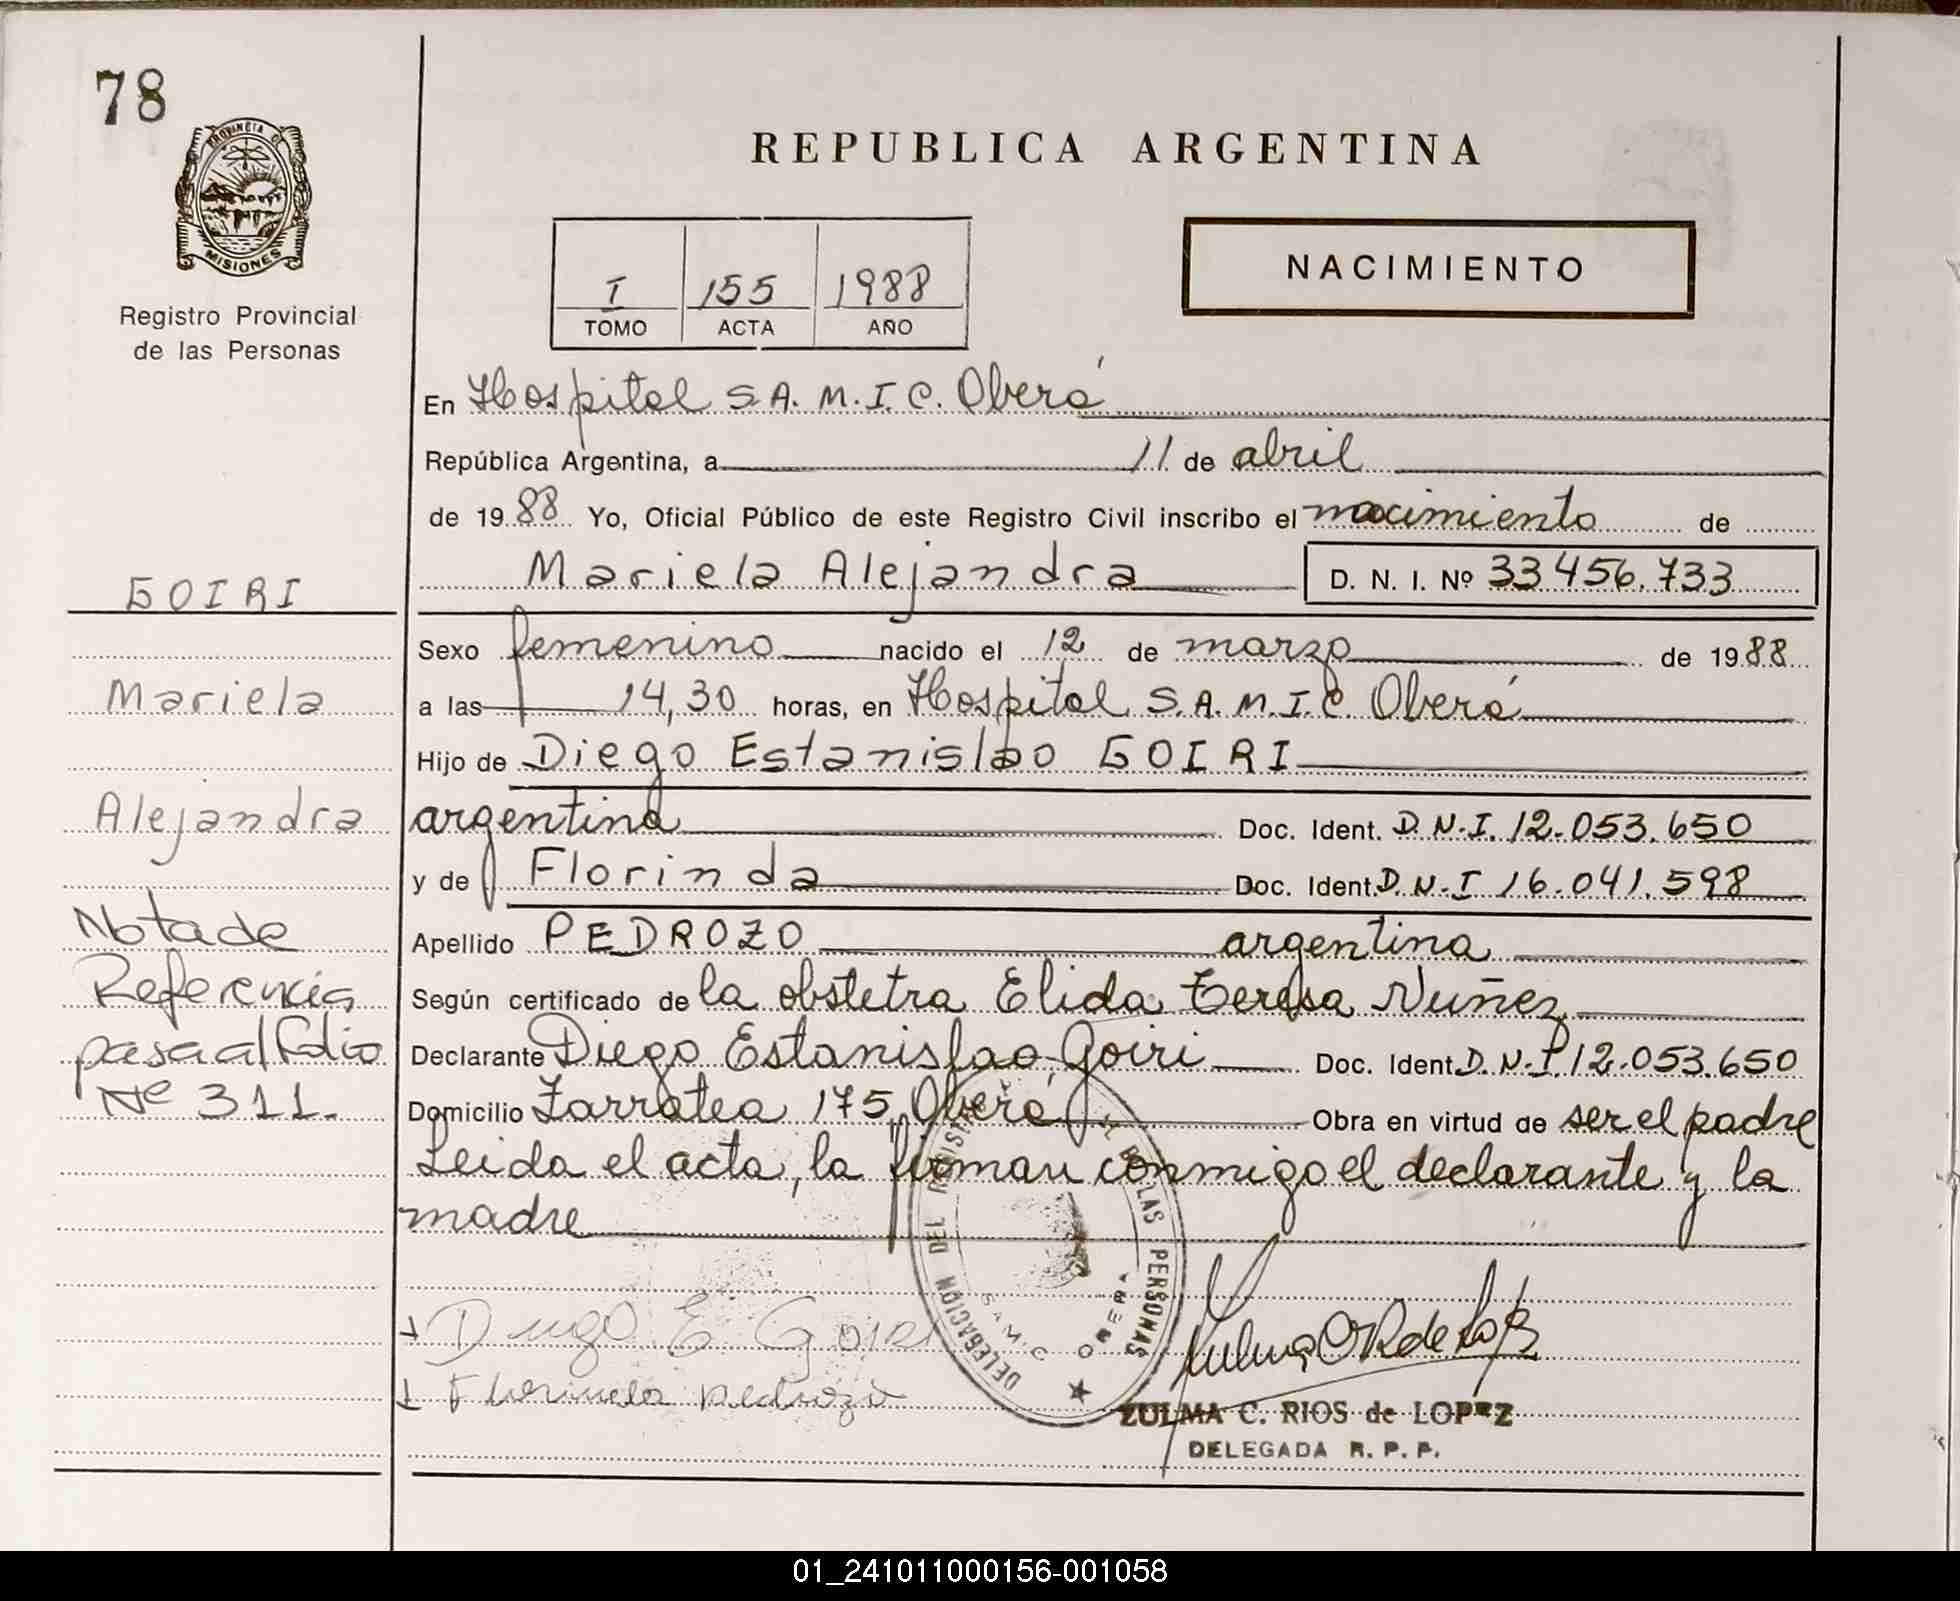 78
PROVINCIA DE
MISIONES
Registro Provincial
de las Personas
REPUBLICA ARGENTINA
I 155 1988
TOMO ACTA AÑO
NACIMIENTO
En Hospital S.A.M.I.C. Oberá
República Argentina, a 11 de abril
de 1988 Yo, Oficial Público de este Registro Civil inscribo el nacimiento de
Mariela Alejandra D. N. I. Nº 33.456.733
Sexo femenino nacido el 12 de marzo de 1988
a las 14,30 horas, en Hospital S.A.M.I.C. Oberá
Hijo de Diego Estanislao GOIRI
argentina Doc. Ident. D.N.I. 12.053.650
y de Florinda Doc. Ident. D.N.I 16.041.598
Apellido PEDROZO argentina
Según certificado de la obstetra Elida Teresa Nuñez
Declarante Diego Estanislao Goiri Doc. Ident. D.N.I. 12.053.650
Domicilio Zarratea 175, Oberá Obra en virtud de ser el padre
Leida el acta, la firman conmigo el declarante y la
madre
GOIRI
Mariela
Alejandra
Nota de
Referencia
pasa al folio
Nº 311.
DELEGACION DEL REGISTRO DE LAS PERSONAS
SAMIC OBERA
Diego E. Goiri
Florinda Pedrozo
ZULMA C. RIOS de LOPEZ
DELEGADA R. P. P.
01_241011000156-001058